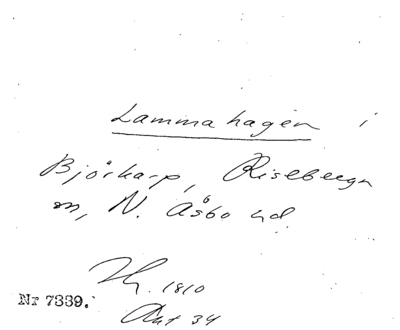 Lammahagen i
Björkarp, Riseberga
sn, N. Åsbo hd
1810
Nr 7339.
Akt 34